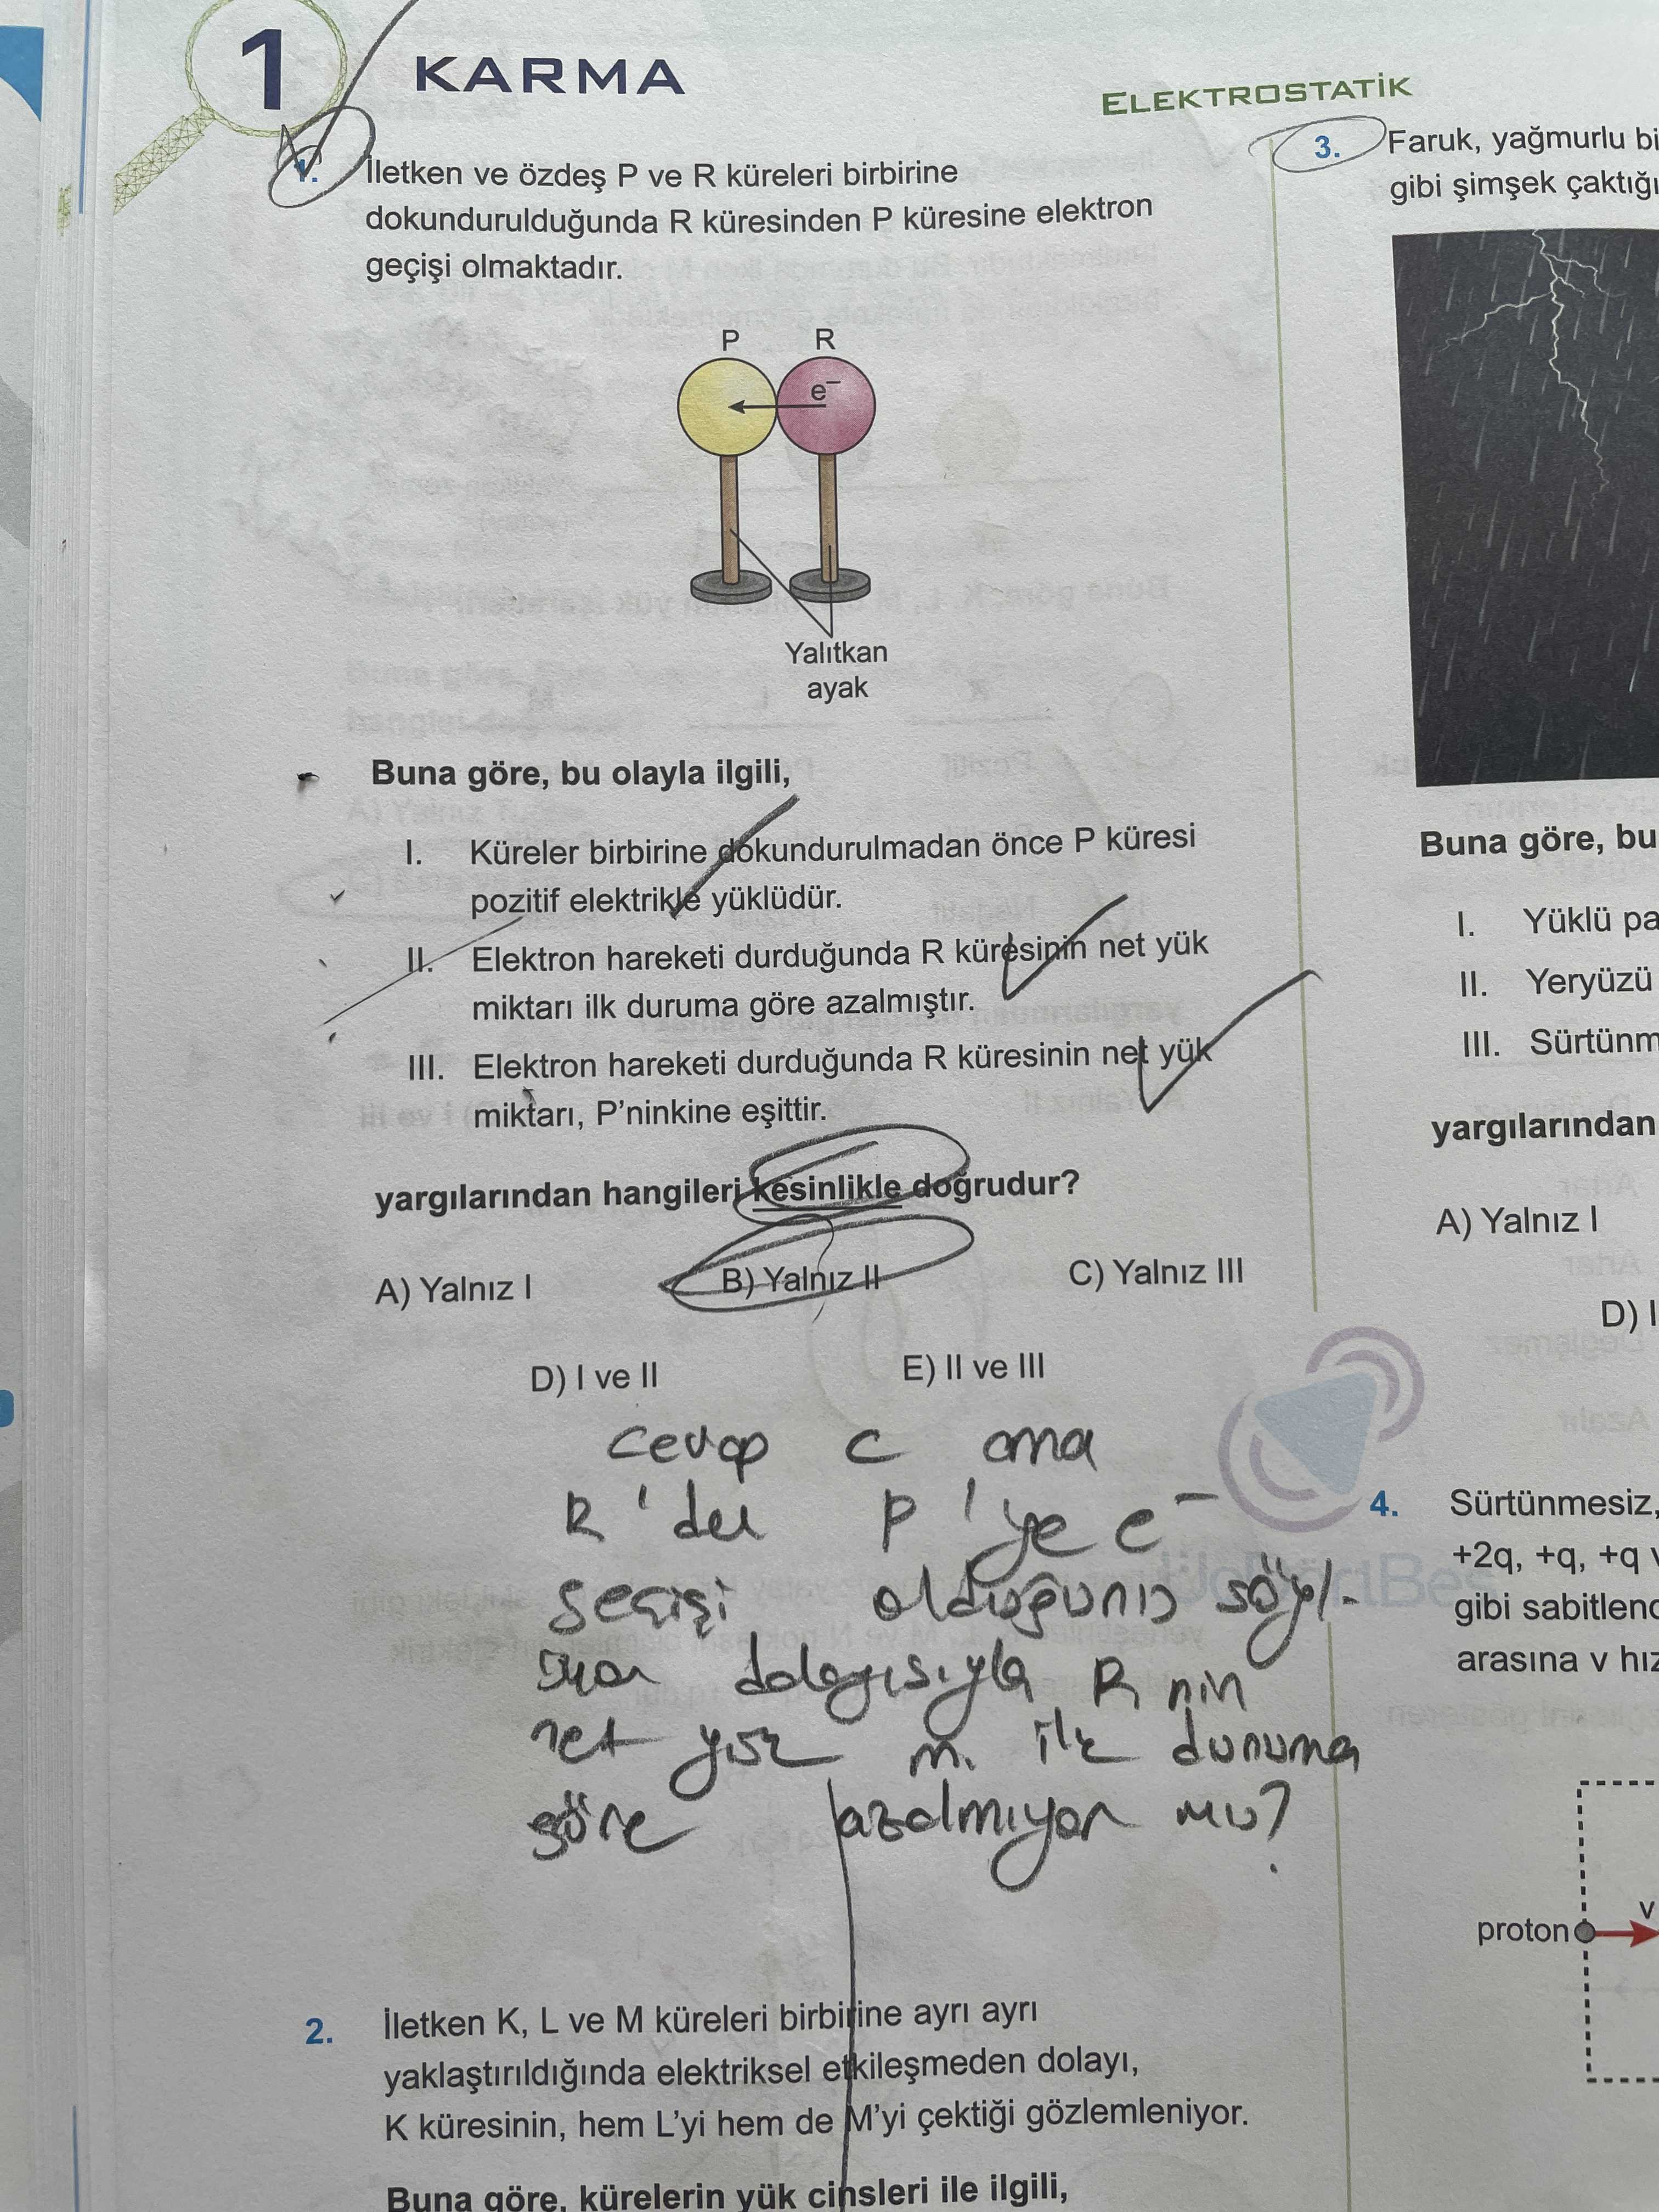 1 KARMA
ELEKTROSTATİK
1. İletken ve özdeş P ve R küreleri birbirine
dokundurulduğunda R küresinden P küresine elektron
geçişi olmaktadır.
P R
e⁻
Yalıtkan
ayak
Buna göre, bu olayla ilgili,
I. Küreler birbirine dokundurulmadan önce P küresi
pozitif elektrikle yüklüdür.
II. Elektron hareketi durduğunda R küresinin net yük
miktarı ilk duruma göre azalmıştır.
III. Elektron hareketi durduğunda R küresinin net yük
miktarı, P'ninkine eşittir.
yargılarından hangileri kesinlikle doğrudur?
A) Yalnız I B) Yalnız II C) Yalnız III
D) I ve II E) II ve III
cevap C ama
R'den P'ye e⁻
geçişi olduğunu söyl-
dolayısıyla R nin
net yük m. ilk duruma
göre azalmıyor mu?
2. İletken K, L ve M küreleri birbirine ayrı ayrı
yaklaştırıldığında elektriksel etkileşmeden dolayı,
K küresinin, hem L'yi hem de M'yi çektiği gözlemleniyor.
Buna göre, kürelerin yük cinsleri ile ilgili,
3. Faruk, yağmurlu bi
gibi şimşek çaktığı
Buna göre, bu
I. Yüklü pa
II. Yeryüzü
III. Sürtünm
yargılarından
A) Yalnız I
D) I
4. Sürtünmesiz,
+2q, +q, +q v
gibi sabitlenc
arasına v hız
proton
v